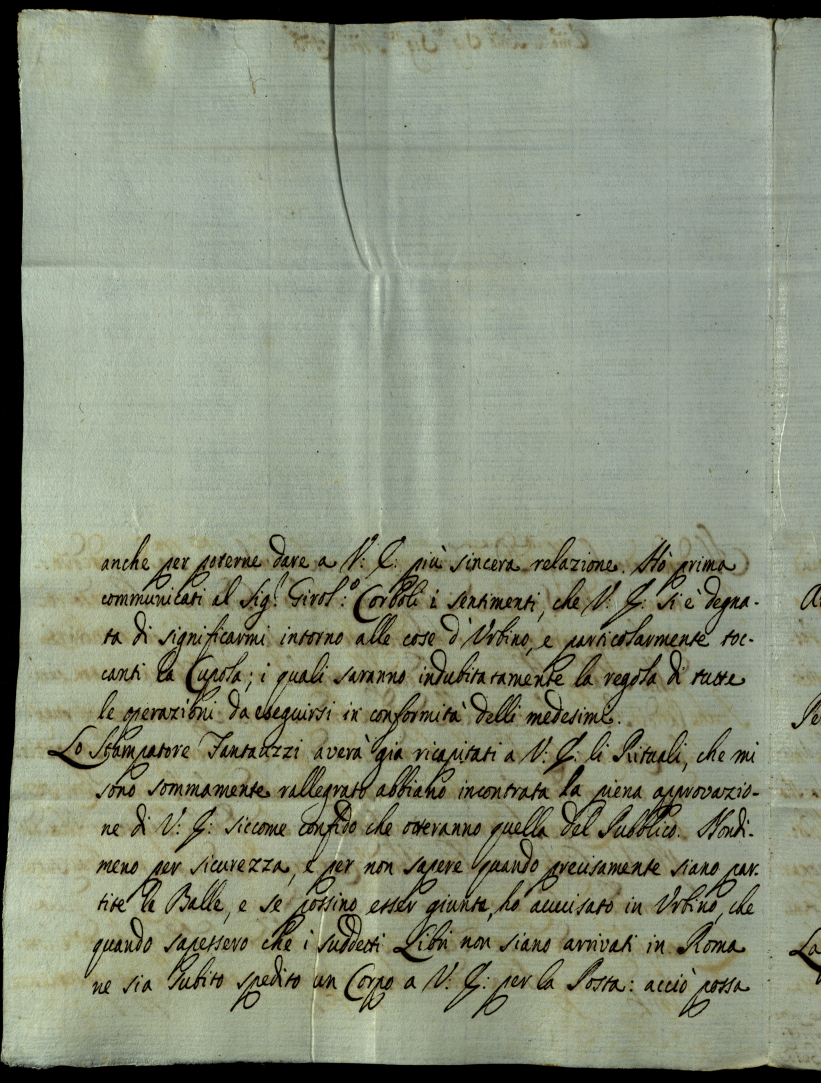 anche per poterne dare a V: E: più sincera relazione. Hò prima
communicati al Sig:r Girol:o Corboli i sentimenti, che V: E: si è degna-
ta di significarmi intorno alle cose d'Urbino, e particolarmente toc-
canti la Cupola; i quali saranno indubitatamente la regola di tutte
le operazioni da eseguirsi in conformità delli medesimi.
Lo Stampatore Fantauzzi averà già ricapitati a V: E: li Rituali, che mi
sono sommamente rallegrato abbiano incontrata la piena approvazio-
ne di V: E: siccome confido che otteranno quella del Pubblico. Nondi-
meno per sicurezza, e per non sapere quando precisamente siano par-
tite le Balle, e se possino esser giunte, ho avvisato in Urbino, che
quando sapessero che i suddetti Libri non siano arrivati in Roma
ne sia subito spedito un Corpo a V: E: per la Posta: acciò possa